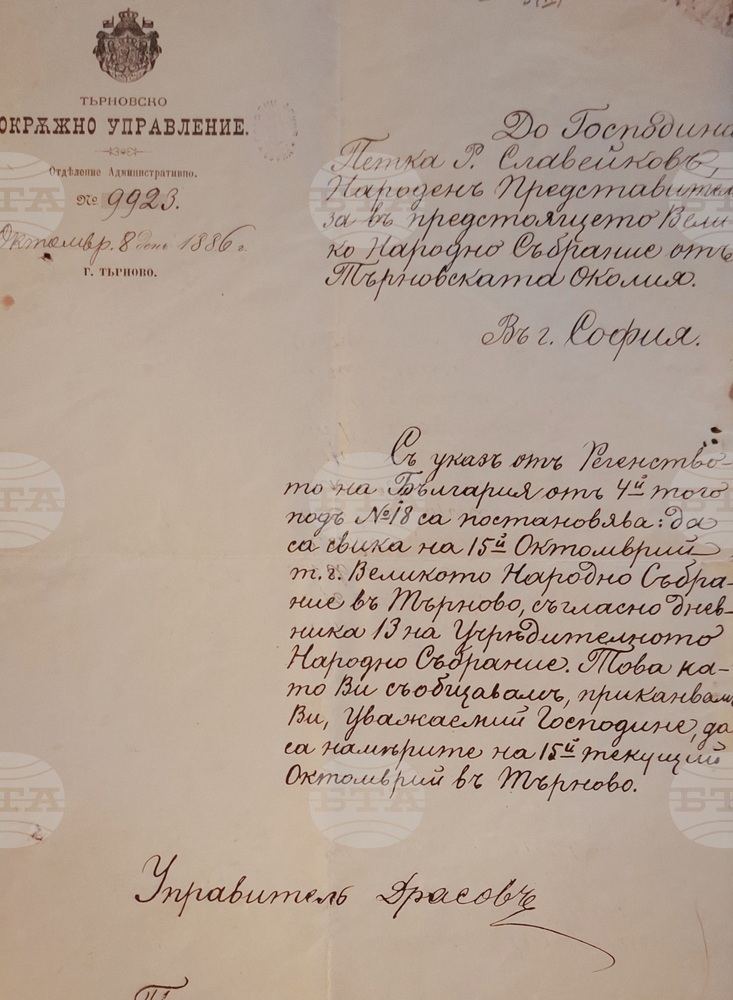 ТЪРНОВСКО
ОКРѪЖНО УПРАВЛЕНИЕ.
Отдѣление Административно.
№ 9923.
Октомвр. 8 день 1886 г.
Г. ТЪРНОВО.
До Господина
Петка Р. Славейковъ,
Народенъ Представител
за въ предстоящето Вели-
ко Народно Събрание отъ
Търновската Околия.
Въ г. София.
Съ указъ отъ Регенство-
то на България отъ 4й того
подъ №18 са постановява: да
са свика на 15й Октомврий
т. г. Великото Народно Събра-
ние въ Търново, съгласно днев-
ника 13 на Учрѣдителното
Народно Събрание. Това ка-
то Ви съобщавамъ, приканвамъ
Ви, Уважаемий Господине, да
са намѣрите на 15й текущий
Октомврий въ Търново.
Управитель Драсовъ
БТА